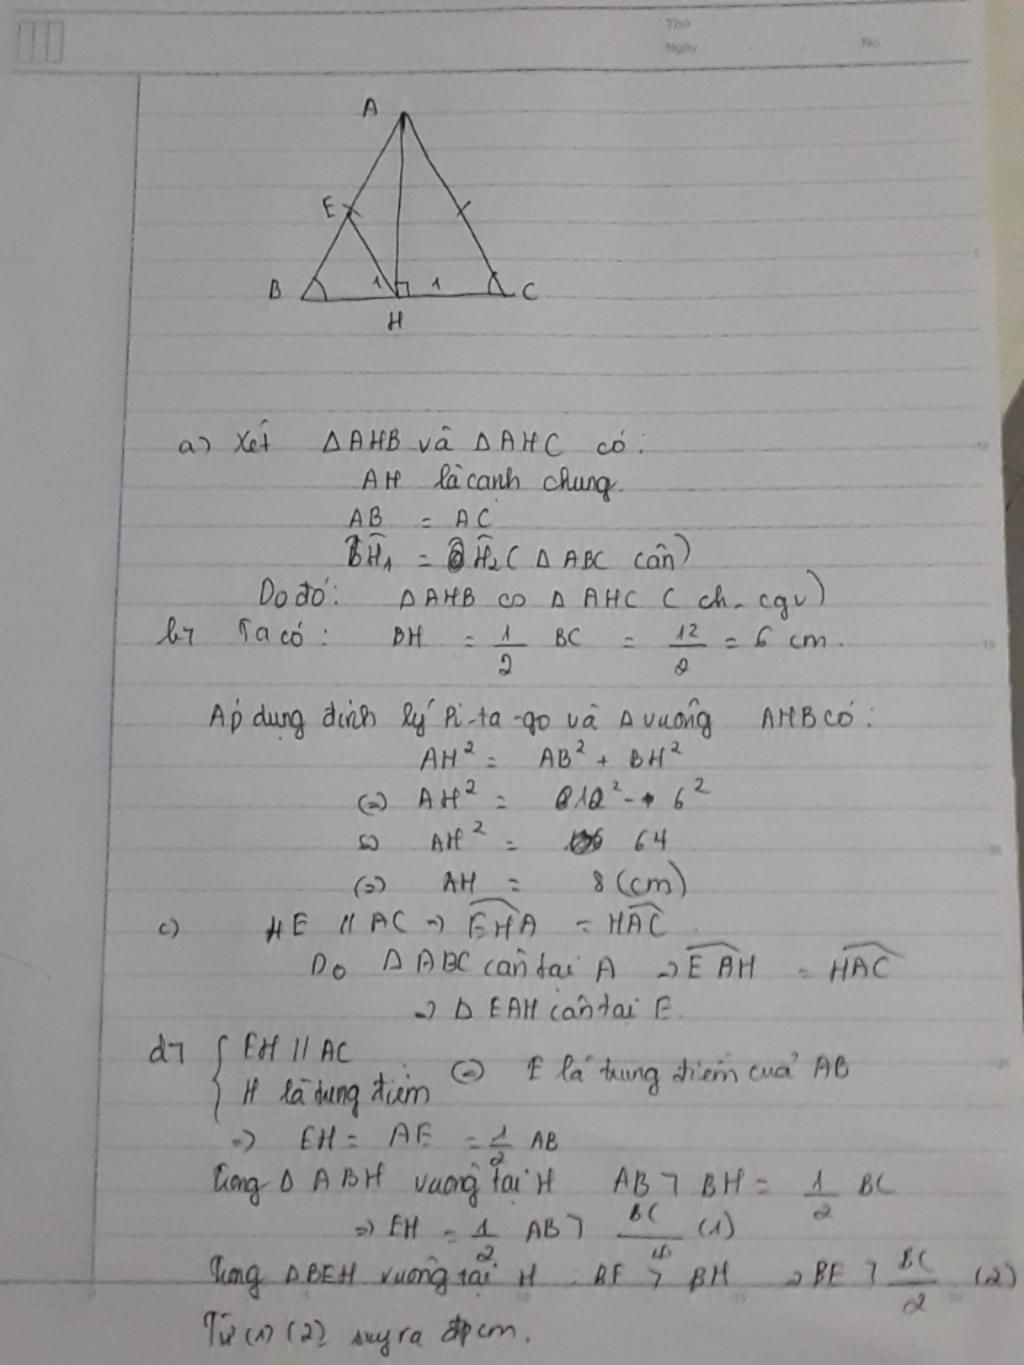 Thứ
Ngày No.
A
E
B 1 1 C
H
a) Xét Δ AHB và Δ AHC có:
AH là cạnh chung.
AB = AC
Ĥ1 = Ĥ2 ( Δ ABC cân)
Do đó: Δ AHB ∽ Δ AHC ( ch - cgv)
b) Ta có: BH = 1/2 BC = 12/2 = 6 cm.
Áp dụng định lý Pi-ta-go và Δ vuông AHB có:
AH² = AB² + BH²
(=) AH² = 10² - 6²
(=) AH² = 64
(=) AH = 8 (cm)
c) HE // AC => EHA = HAC
Do Δ ABC cân tại A => EAH = HAC
=> Δ EAH cân tại E.
d) { EH // AC
H là trung điểm (=) E là trung điểm của AB
=> EH = AE = 1/2 AB
Trong Δ ABH vuông tại H AB > BH = 1/2 BC
=> EH = 1/2 AB > BC/4 (1)
Trong Δ BEH vuông tại H : BE > BH => BE > BC/2 (2)
Từ (1) (2) suy ra đpcm.